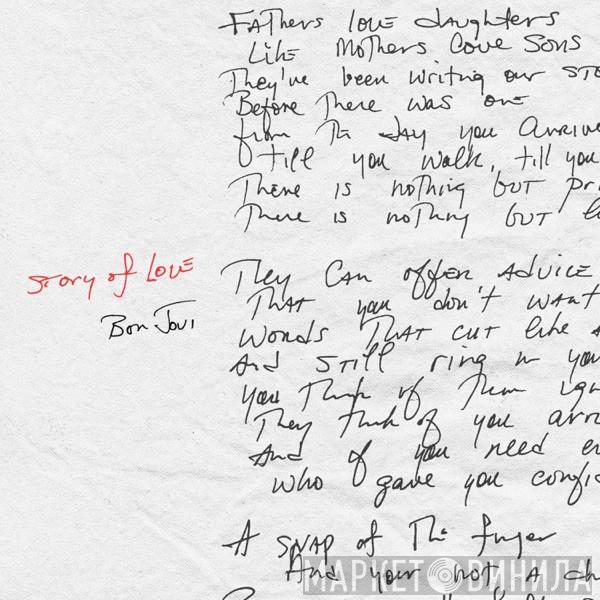 Fathers love daughters
Like Mothers Love Sons
They've been writing our sto
Before There was one
from The day you arrive
till you walk, till you
There is nothing but pri
There is nothing but l
Story of Love
Bon Jovi
They Can offer Advice
That you don't want
Words That cut like a
And still ring in you
You Think of Them
They think of you
And if you need
who gave you confid
A snap of The finger
And your not A ch
МАРКЕТ ВИНИЛА